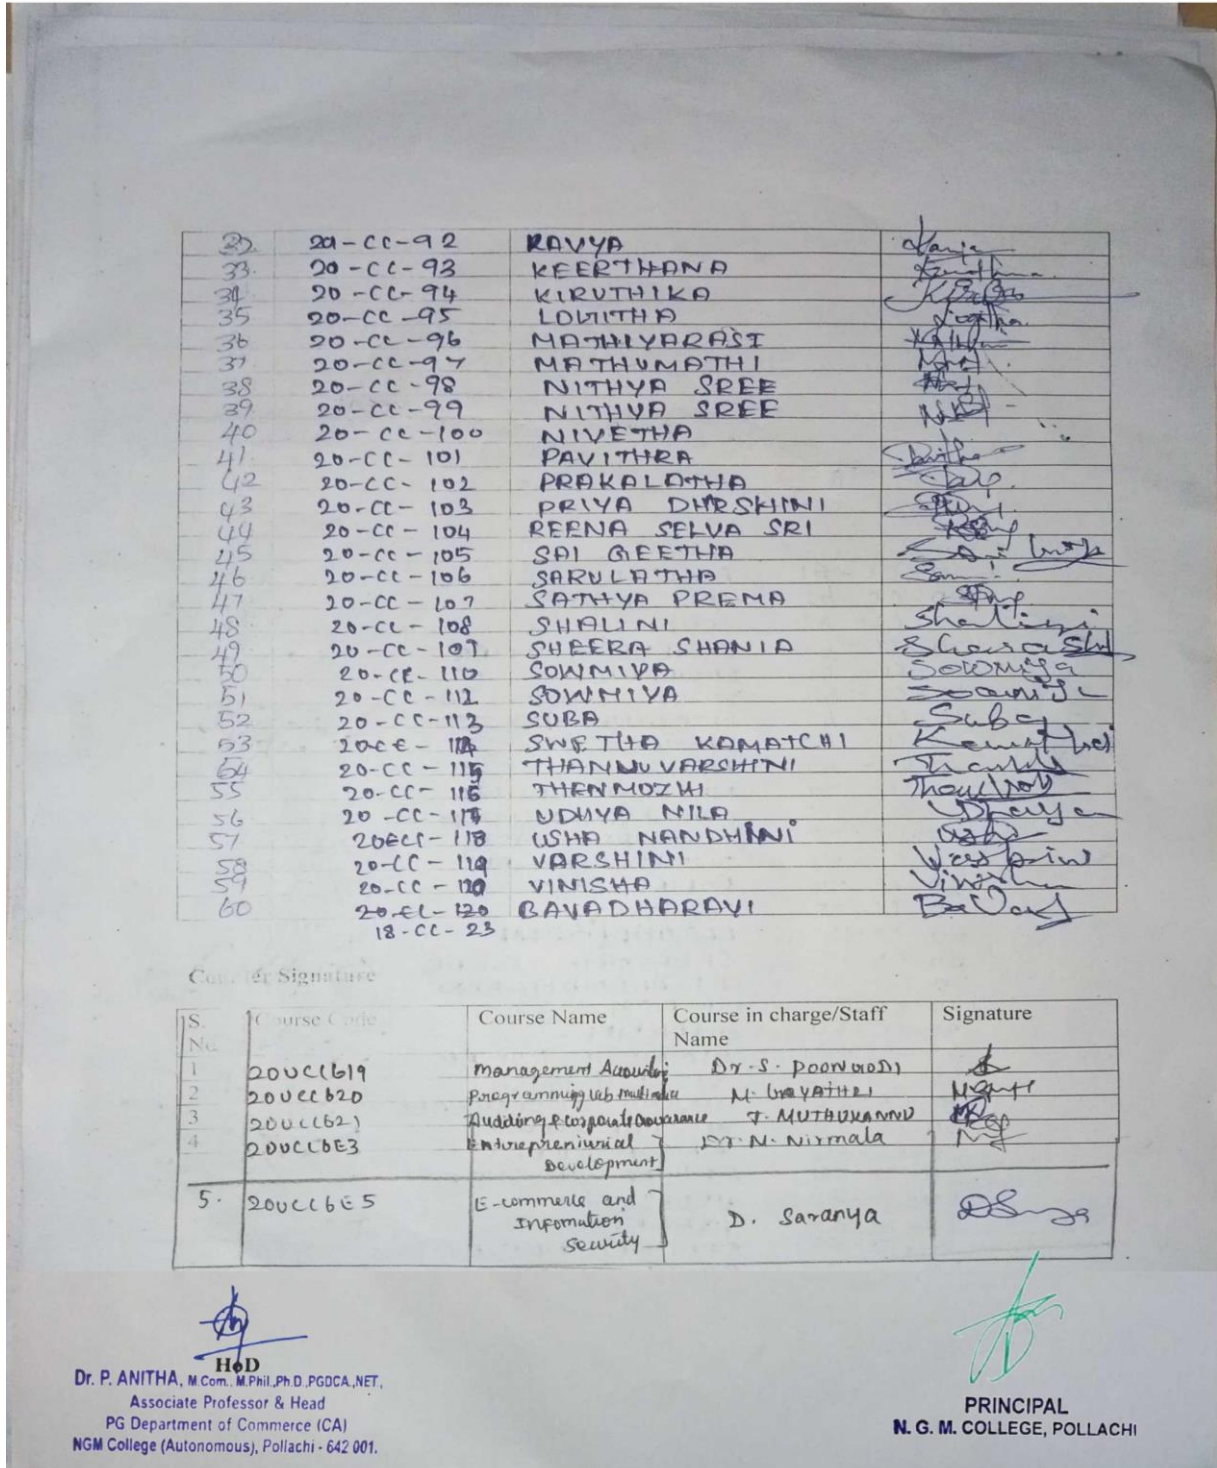 32. 20-CC-92 KAVYA
33. 20-CC-93 KEERTHANA
34. 20-CC-94 KIRUTHIKA
35 20-CC-95 LOGITHA Logitha.
36 20-CC-96 MATHIYARASI
37 20-CC-97 MATHUMATHI
38 20-CC-98 NITHYA SREE
39 20-CC-99 NITHYA SREE
40 20-CC-100 NIVETHA
41 20-CC-101 PAVITHRA
42 20-CC-102 PRAKALATHA
43 20-CC-103 PRIYA DHRSHINI
44 20-CC-104 REENA SELVA SRI
45 20-CC-105 SAI GEETHA
46 20-CC-106 SARULATHA
47 20-CC-107 SATHYA PREMA
48 20-CC-108 SHALINI Shalini
49 20-CC-109 SHEERA SHANIA
50 20-CC-110 SOWMIYA Sowmiya
51 20-CC-112 SOWMIYA
52 20-CC-113 SUBA Suba
53 20CC-114 SWETHA KAMATCHI
54 20-CC-115 THANNUVARSHINI
55 20-CC-116 THENMOZHI
56 20-CC-117 UDHYA NILA
57 118 USHA NANDHINI
58 20-CC-119 VARSHINI
59 20-CC-120 VINISHA
60 20-CC-120 BAVADHARAVI
18-CC-23
Counter Signature
S. No. Course Code Course Name Course in charge/Staff Name Signature
1 20UCC619 Management Accounting Dr. S. POONGODI
2 20UCC620 Programming Lab Multimedia M. GAYATHRI
3 20UCC621 Auditing & corporate Governance J. MUTHUKANNU
4 20UCC6E3 Entrepreniurial Dr. N. Nirmala
Development
5. 20UCC6E5 E-commerce and
Infomation D. Saranya
Security
HoD
Dr. P. ANITHA, M.Com., M.Phil.,Ph.D.,PGDCA.,NET.,
Associate Professor & Head
PG Department of Commerce (CA)
NGM College (Autonomous), Pollachi - 642 001.
PRINCIPAL
N. G. M. COLLEGE, POLLACHI